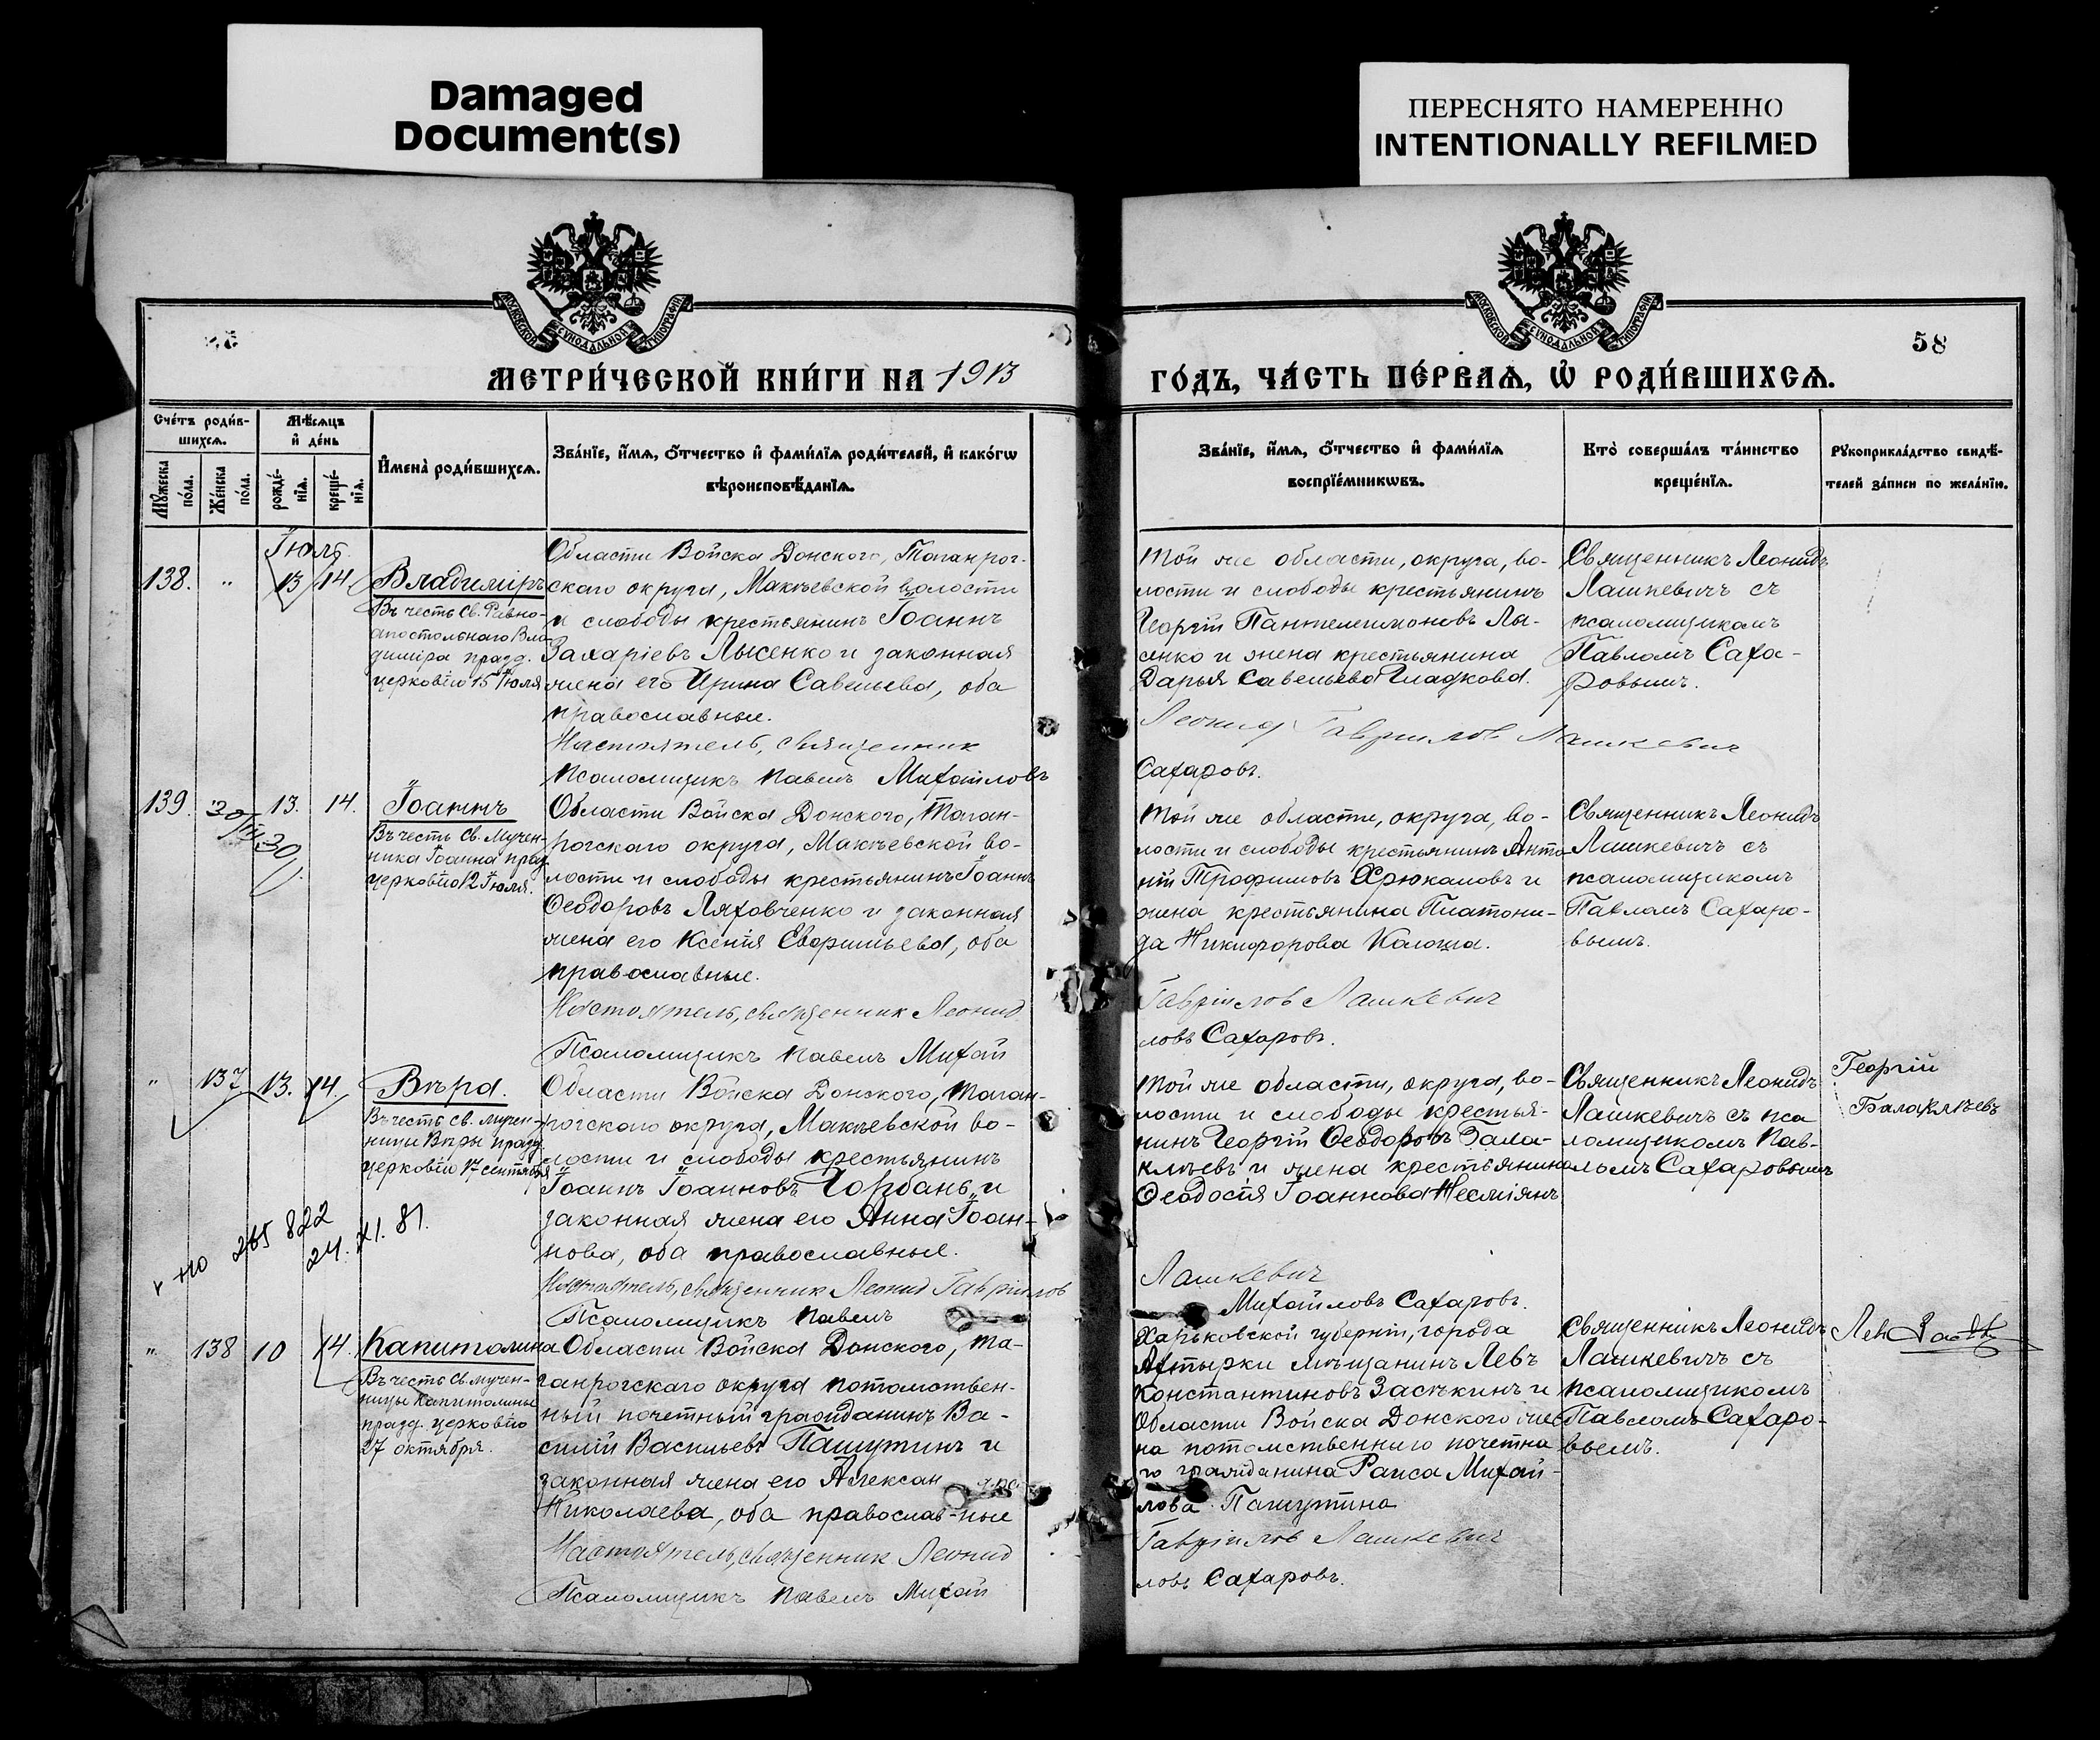 Damaged
Document(s)
ПЕРЕСНЯТО НАМЕРЕННО
INTENTIONALLY REFILMED
МОСКОВСКОЙ СѴНОДАЛЬНОЙ ТИПОГРАФІИ
МОСКОВСКОЙ СѴНОДАЛЬНОЙ ТИПОГРАФІИ
58
МЕТРИ́ЧЕСКОЙ КНИ́ГИ НА 1913
ГО́ДЪ, ЧА́СТЬ ПЕ́РВАѦ, Ѡ҆ РОДИ́ВШИХСѦ.
Сче́тъ роди́в-
шихсѧ.
Мѣ́сѧцъ
и҆ де́нь
Мꙋ́жеска
по́ла.
Же́нска
по́ла.
рожде́-
нїѧ.
креще́-
нїѧ.
И҆мена̀ роди́вшихсѧ.
Зва́нїе, и҆́мѧ, ѻ҆́тчество и҆ фами́лїѧ роди́телей, и҆ како́гѡ
вѣроисповѣ́данїѧ.
Зва́нїе, и҆́мѧ, ѻ҆́тчество и҆ фами́лїѧ
воспрїе́мникѡвъ.
Кто̀ соверша́лъ та́инство
креще́нїѧ.
Рꙋкоприкла́дство свидѣ́-
телей за́писи по жела́нїю.
Іюля.
138. " 13 14
Владиміръ
Въ честь Св. Равно-
апостольнаго Вла-
диміра празд.
церковію 15 Іюля
Области Войска Донского, Таганрог-
скаго округа, Макѣевской волости
и слободы крестьянинъ Іоаннъ
Захаріевъ Лысенко и законная
жена его Ирина Савельева, оба
православные.
Настоятель, священник
Псаломщикъ Павелъ Михайловъ
Той же области, округа, во-
лости и слободы крестьянинъ
Георгій Пантелеимоновъ Лы-
сенко и жена крестьянина
Дарья Савельева Гладкова.
Леонид Гавриилов Лашкевич
Сахаровъ.
Священникъ Леонидъ
Лашкевичъ съ
псаломщикомъ
Павломъ Саха-
ровымъ.
139. 13. 14.
30
Іоаннъ
Въ честь Св. Мучен-
ника Іоанна празд.
церковію 12 Іюля.
Области Войска Донского, Таган-
рогскаго округа, Макѣевской во-
лости и слободы крестьянинъ Іоаннъ
Ѳеодоровъ Ляховченко и законная
жена его Ксенія Евфимьева, оба
православные.
Настоятель, священник Леонид
Псаломщикъ Павелъ Михай
Той же области, округа, во-
лости и слободы крестьянинъ Анто
ній Трофимовъ Хрюкаловъ и
жена крестьянина Платони-
да Никифорова Калоша.
Гавріилов Лашкевич
ловъ Сахаровъ.
Священникъ Леонидъ
Лашкевичъ съ
псаломщикомъ
Павломъ Сахаро-
вымъ.
" 137 13. 14.
Вѣра.
Въ честь Св. мучен-
ницы Вѣры празд.
церковію 17 сентября
Области Войска Донского, Таган-
рогскаго округа, Макѣевской во-
лости и слободы крестьянинъ
Іоаннъ Іоанновъ Горбань и
законная жена его Анна Іоан-
нова, оба православные.
Настоятель, священник Леонид Гавріилов
Псаломщикъ Павелъ
Той же области, округа, во-
лости и слободы крестья-
нинъ Георгій Ѳеодоровъ Бала-
клѣевъ и жена крестьянина
Ѳеодосія Іоаннова Несміянъ
Лашкевич
Михайловъ Сахаровъ.
Священникъ Леонидъ
Лашкевичъ съ пса
ломщикомъ Пав-
ломъ Сахаровымъ
Георгій
Балаклѣевъ
265 822
24. XI. 81.
" 138 10 14.
Капитолина
Въ честь Св. мучен-
ницы Капитолины
празд. церковію
27 октября.
Области Войска Донского, Та-
ганрогскаго округа потомствен-
ный почетный гражданинъ Ва-
силій Васильевъ Пашутинъ и
законная жена его Алексан дра
Николаева, оба православ-ные
Настоятель, священник Леонид
Псаломщикъ Павелъ Михай
Харьковской губерніи, города
Ахтырки мѣщанинъ Левъ
Константиновъ Засѣкинъ и
Области Войска Донского же
на потомственнаго почетна
го гражданина Раиса Михай-
лова Пашутина
Гавріилов Лашкевич
ловъ Сахаровъ.
Священникъ Леонидъ
Лашкевичъ съ
псаломщикомъ
Павломъ Сахаро-
вымъ.
Лев